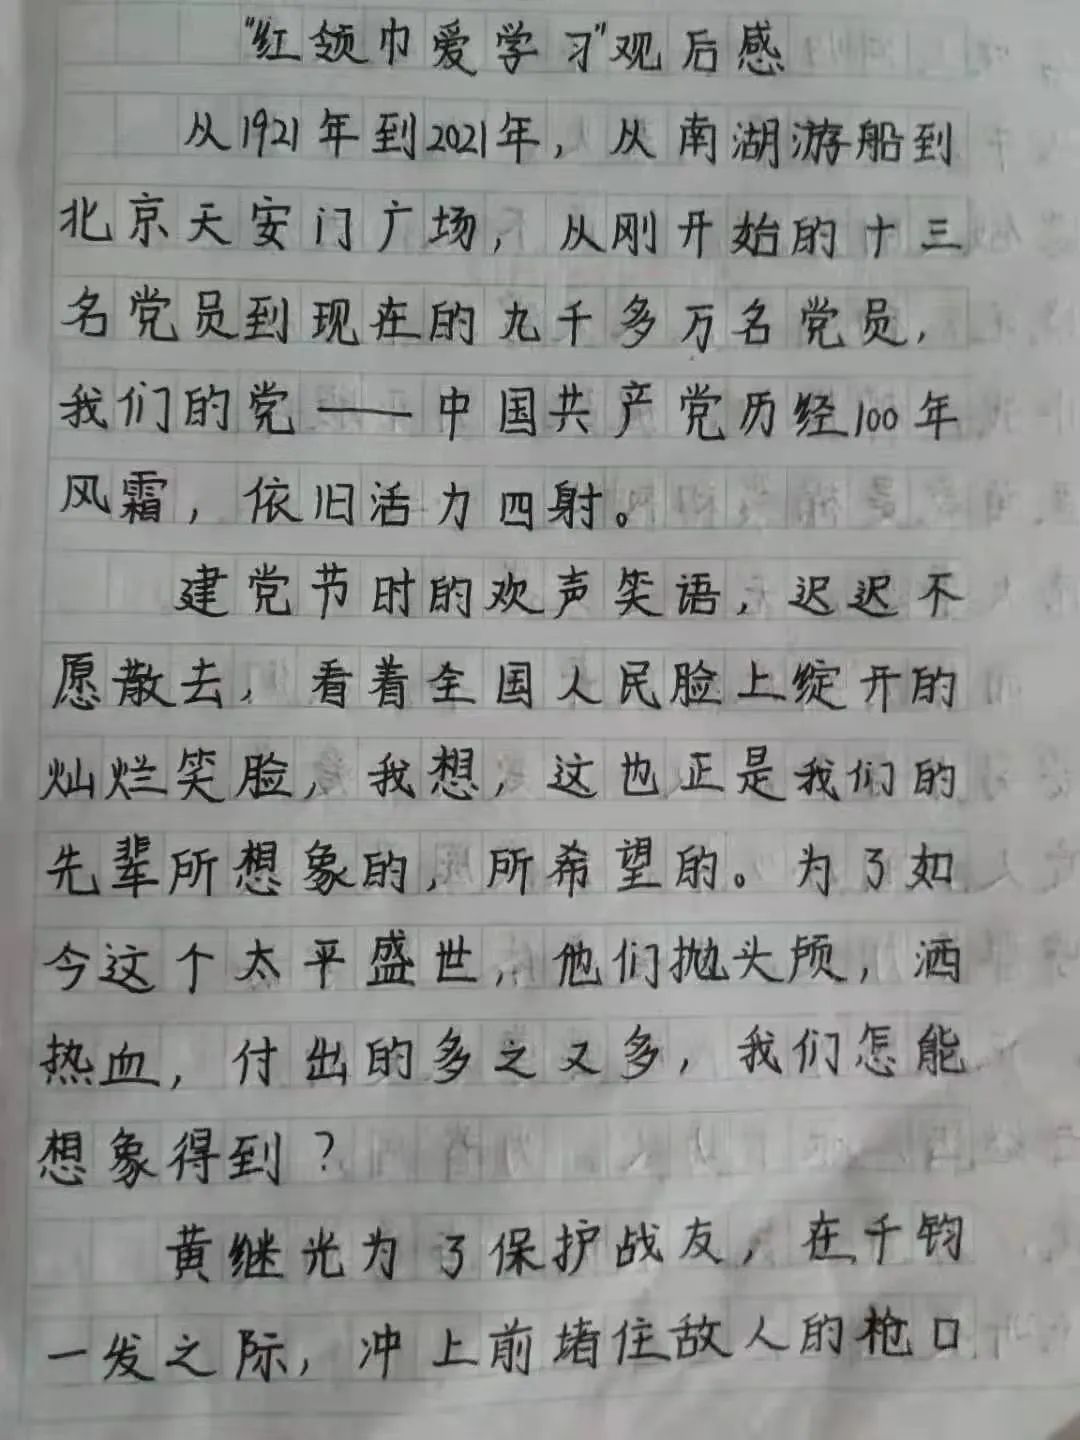 "红领巾爱学习"观后感
从1921年到2021年，从南湖游船到
北京天安门广场，从刚开始的十三
名党员到现在的九千多万名党员，
我们的党——中国共产党历经100年
风霜，依旧活力四射。
建党节时的欢声笑语，迟迟不
愿散去，看着全国人民脸上绽开的
灿烂笑脸，我想，这也正是我们的
先辈所想象的，所希望的。为了如
今这个太平盛世，他们抛头颅，洒
热血，付出的多之又多，我们怎能
想象得到？
黄继光为了保护战友，在千钧
一发之际，冲上前堵住敌人的枪口